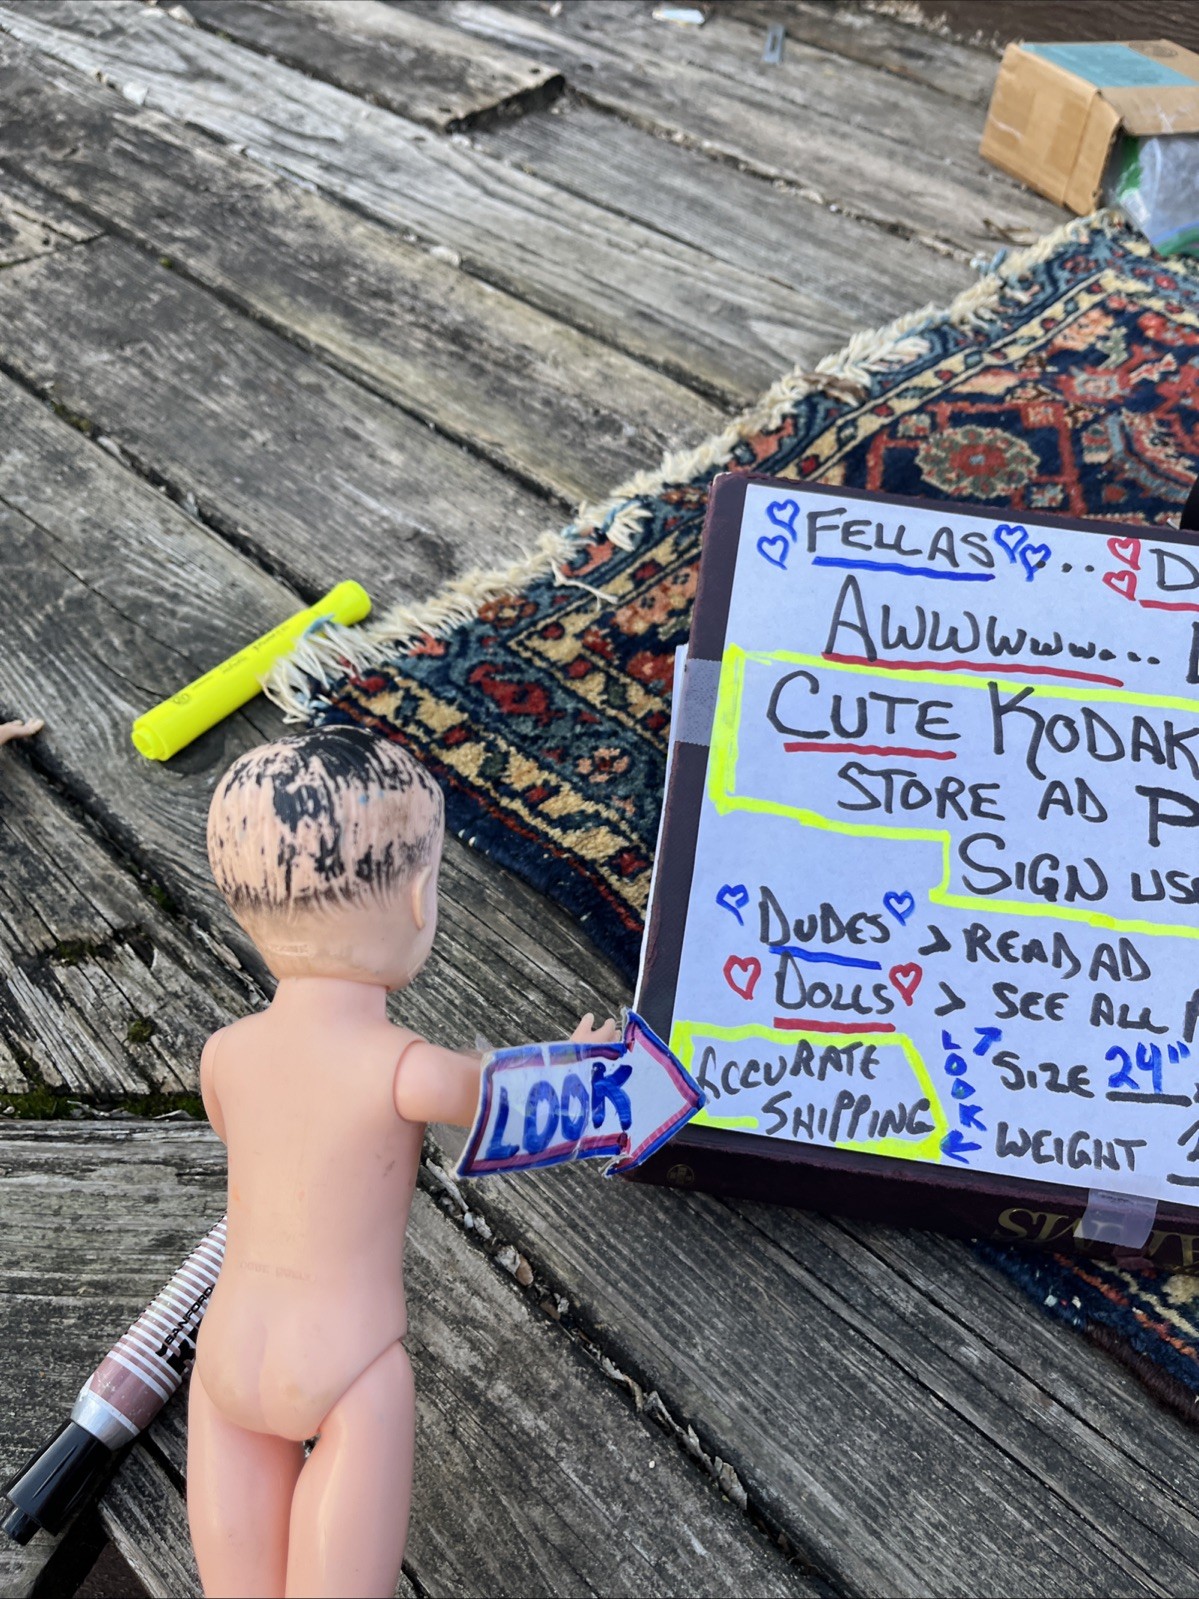 FELLAS ... D
AWWWWWW...
CUTE KODAK
STORE AD P
SIGN US
DUDES > READ AD
DOLLS > SEE ALL
ACCURATE
SHIPPING
LOOK
SIZE 24"
WEIGHT 2
LOOK
SANFORD